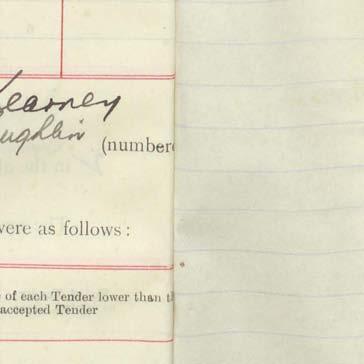 Kearney
ughlin
(numbere
were as follows:
of each Tender lower than th
accepted Tender